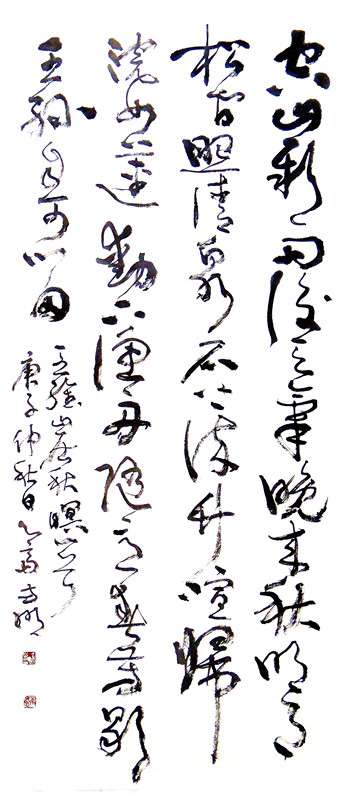 空山新雨後天氣晚來秋明月
松間照清泉石上流竹喧歸
浣女蓮動下漁舟隨意春芳歇
王孫自可留
王維山居秋暝
庚子仲秋日